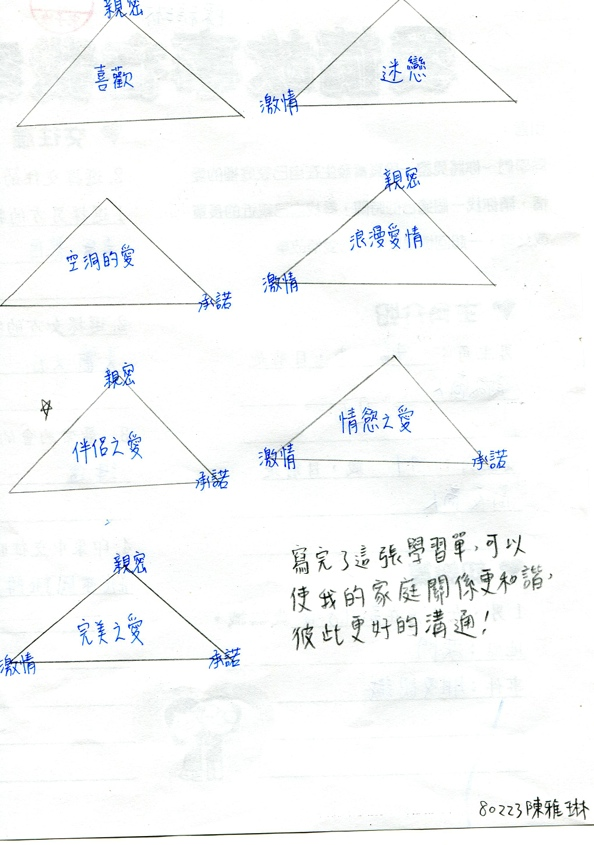 親密
喜歡
迷戀
激情
空洞的愛
承諾
親密
浪漫愛情
激情
親密
伴侶之愛
承諾
情慾之愛
激情
承諾
親密
完美之愛
激情
承諾
寫完了這張學習單,可以
使我的家庭關係更和諧,
彼此更好的溝通!
80223陳雅琳